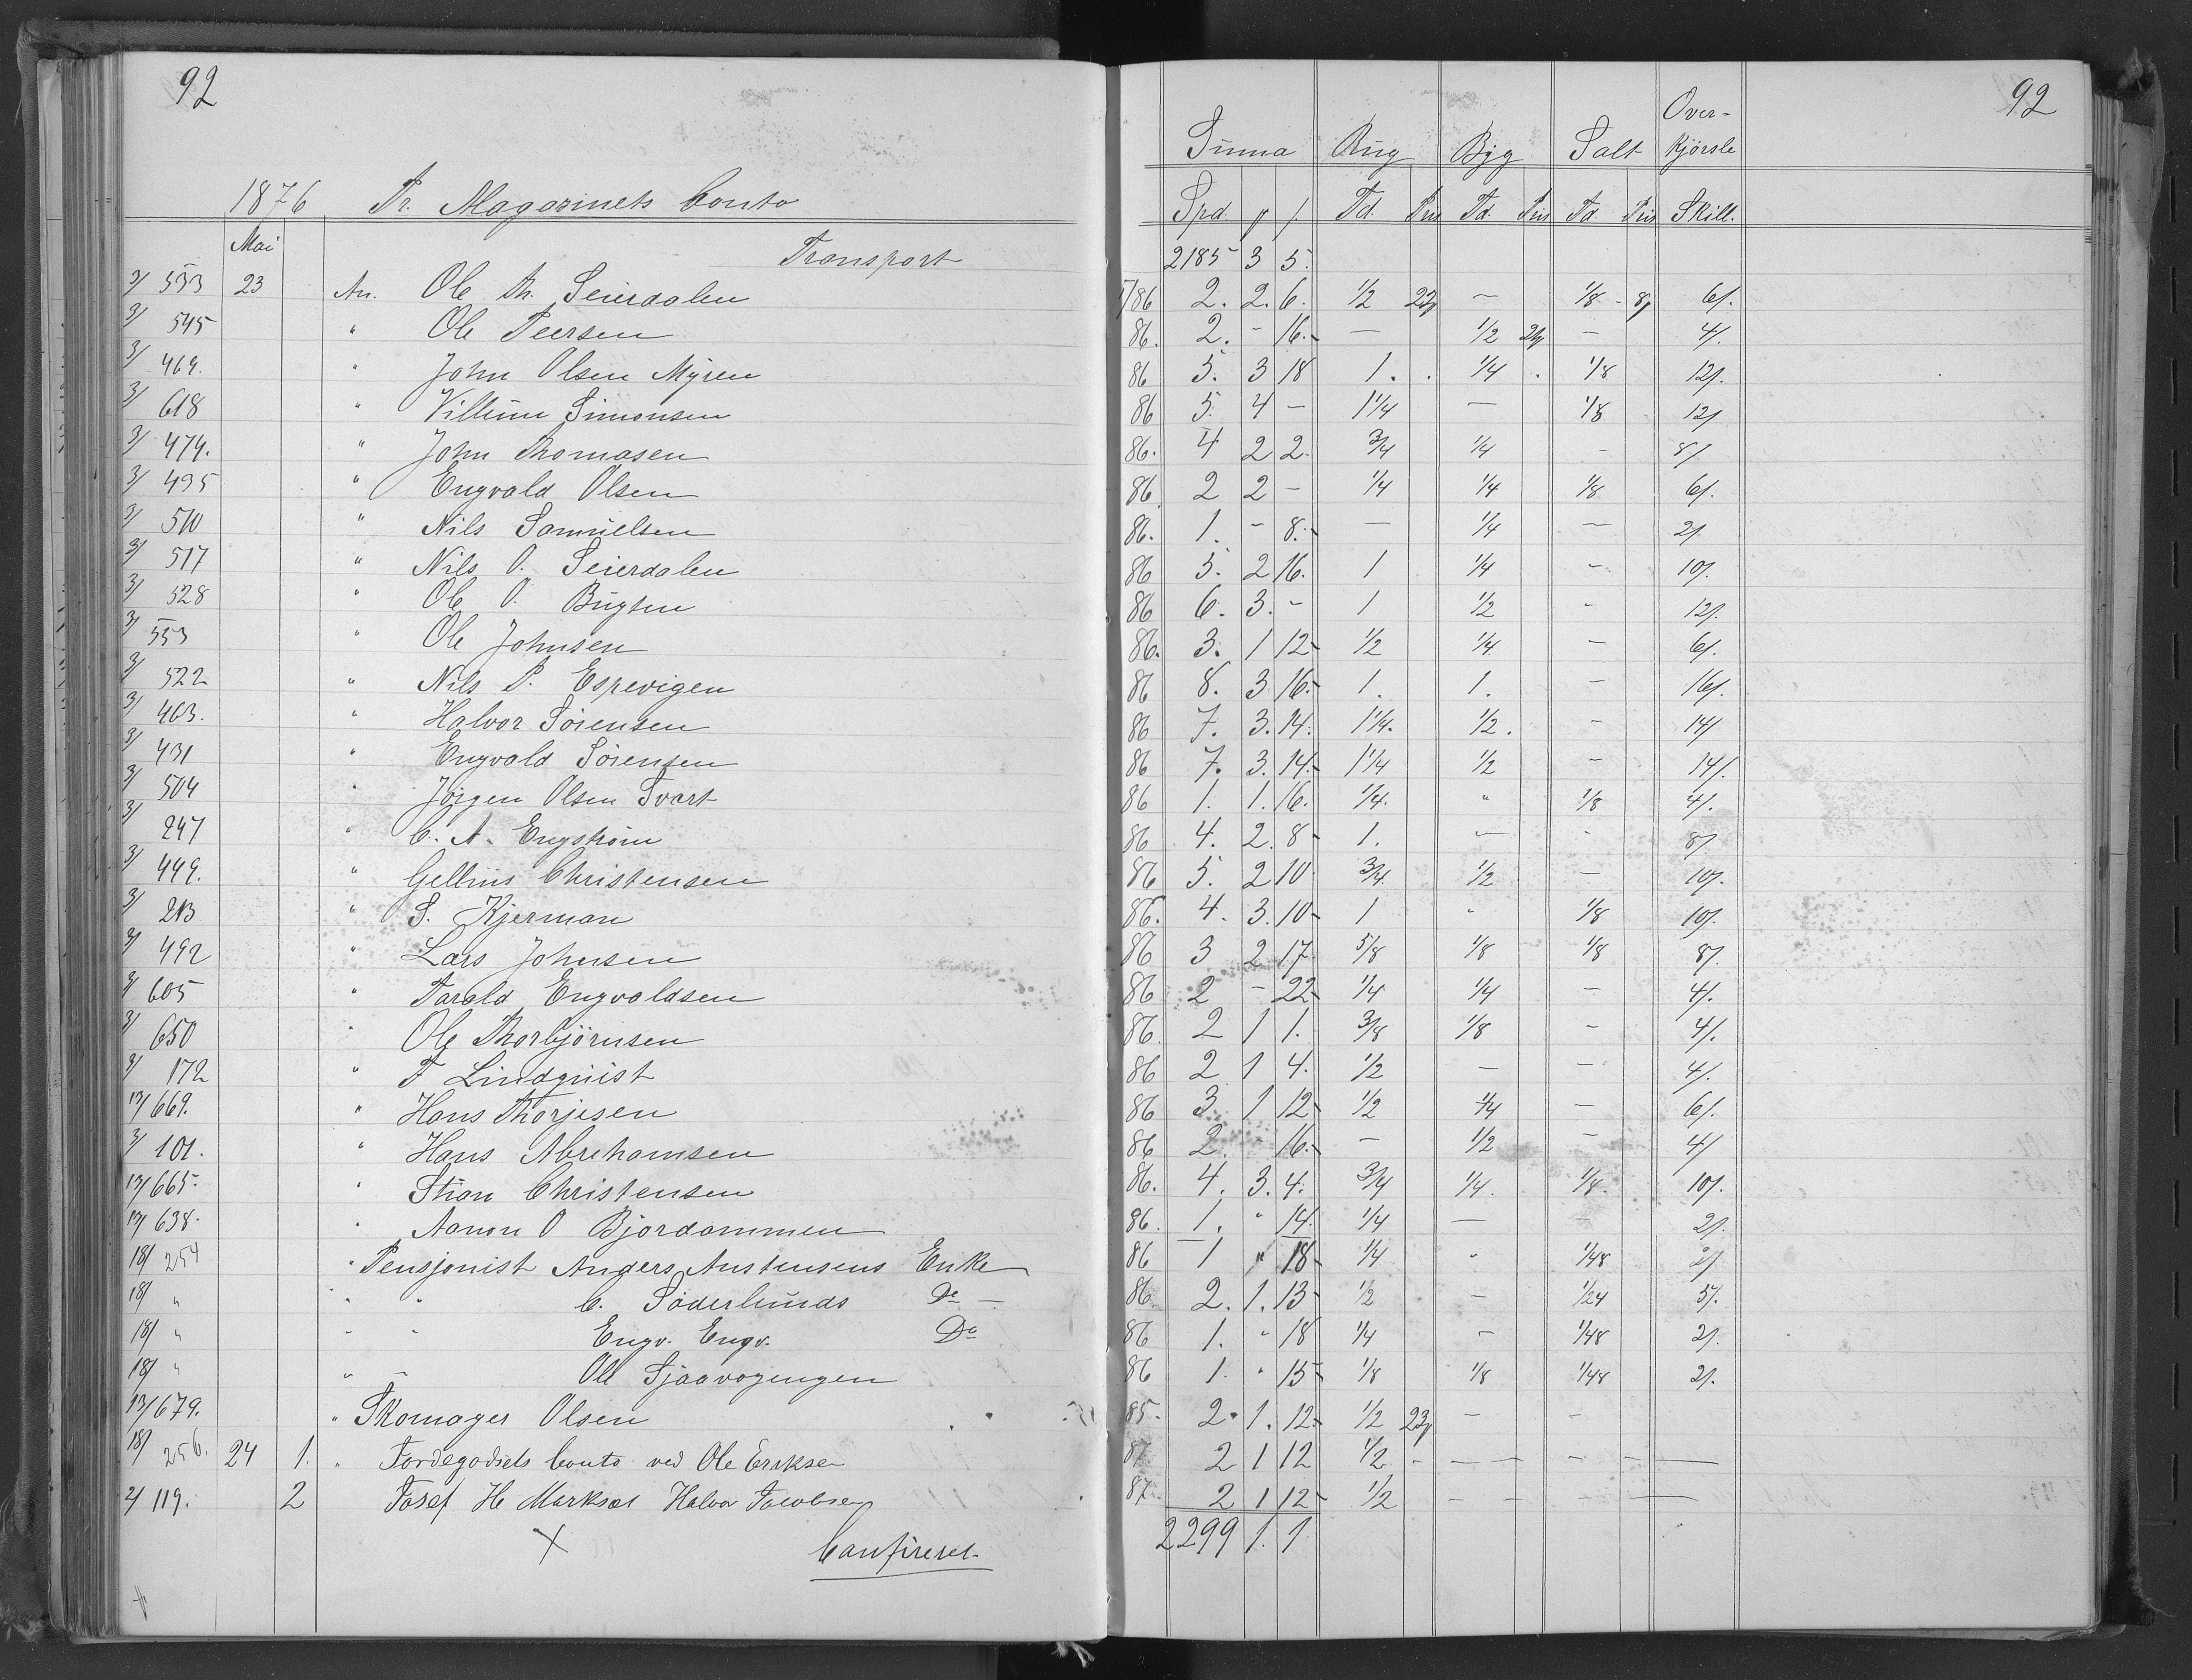 92
92
Over-
Summa Rug Byg Salt Kjørsle
1876 Pr. Magasinets Conto
Spd. Td. Pris Td. Pris Td. Pris Skill.
Mai
Transport 2185 3 5.
3/ 553 23 An. Ole Th. Seierdalen 1/86 2. 2. 6. 1/2 22 — 1/8 - 8 6/.
3/ 545 " Ole Peersen 86. 2. - 16.- — 1/2 — 4/.
3/ 469. " John Olsen Myren 86 5. 3 18 1. . 1/4 . 1/8 12/.
3/ 618 " Villum Simonsen 86 5. 4 - 1 1/4 — 1/8 12/
3/ 474. " John Thomasen 86. 4 2 2. 3/4 1/4 - 8/
3/ 495 " Engvald Olsen 86 2 2 - 1/4 1/4 1/8 6/.
3/ 510 " Nils Samuelsen 86. 1. - 8.- — 1/4 — 2/.
3/ 517 " Nils O. Seierdalen 86 5. 2 16. 1 1/4 - 10/.
3/ 528 " Ole O. Bugten 86 6. 3. - 1 1/2 - 12/.
3/ 553 " Ole Johnsen 86. 3. 1 12- 1/2 1/4 — 6/.
3/ 522 " Nils P. Espevigen 86 8. 3 16.- 1. 1. — 16/.
3/ 463. " Halvor Sörensen 86 7. 3. 14. 1 1/4. 1/2. - 14/
3/ 431 " Engvald Sörensen 86 7. 3. 14.- 1 1/4 1/2 - 14/.
3/ 504 " Jörgen Olsen Svart 86 1. 1. 16. 1/4. " 1/8 4/.
3/ 247 " C. A. Engström 86 4. 2. 8- 1. — - 8/
3/ 449. " Gellius Christensen 86 5. 2 10 3/4 1/2 — 10/.
3/ 213 " S. Kjerman 86. 4. 3. 10- 1 - 1/8 10/.
3/ 492 " Lars Johnsen 86 3 2 17 5/8 1/8 1/8 8/.
3/ 605 " Tarald Engvaldsen 86 2 - 22- 1/4 1/4 - 4/.
3/ 650 " Ole Thorbjörnsen 86. 2 1 1. 3/8 1/8 - 4/.
3/ 172 " F Lindquist 86 2 1 4. 1/2 — — 4/.
17/ 669. " Hans Thorjesen 86 3 1 12- 1/2 1/4 — 6/.
3/ 101. " Hans Abrehamsen 86 2. - 16.- — 1/2 — 4/
17/ 665. " Stian Christensen 86. 4. 3. 4. 3/4 1/4. 1/8. 10/.
17/ 638. " Aanon O Bjordammen 86. 1. " 14. 1/4 — — 2/.
18/ 254 " Pensjonist Anders Austensens Enke 86 1 " 18- 1/4 " 1/48 2/
18/ " " " C. Söderlunds Do — 86. 2. 1. 13- 1/2 — 1/24 5/.
18/ " " " Engv. Engv. Do 86 1. " 18 1/4 — 1/48 2/.
18/ " " " Ole Sjaavogengen 86 1. " 15- 1/8 1/8 1/48 2/.
17/ 679. " Skomager Olsen 85. 2. 1. 12.- 1/2 23 — —
18/ 256. 24 1. " Jordegodsets Conto ved Ole Eriksen 87 2 1 12 1/2 - — — - - —
2/ 119. 2 Josef H. Halvor Jacobsen 87. 2 1 12- 1/2 - - - —
2299 1. 1
Confireret.